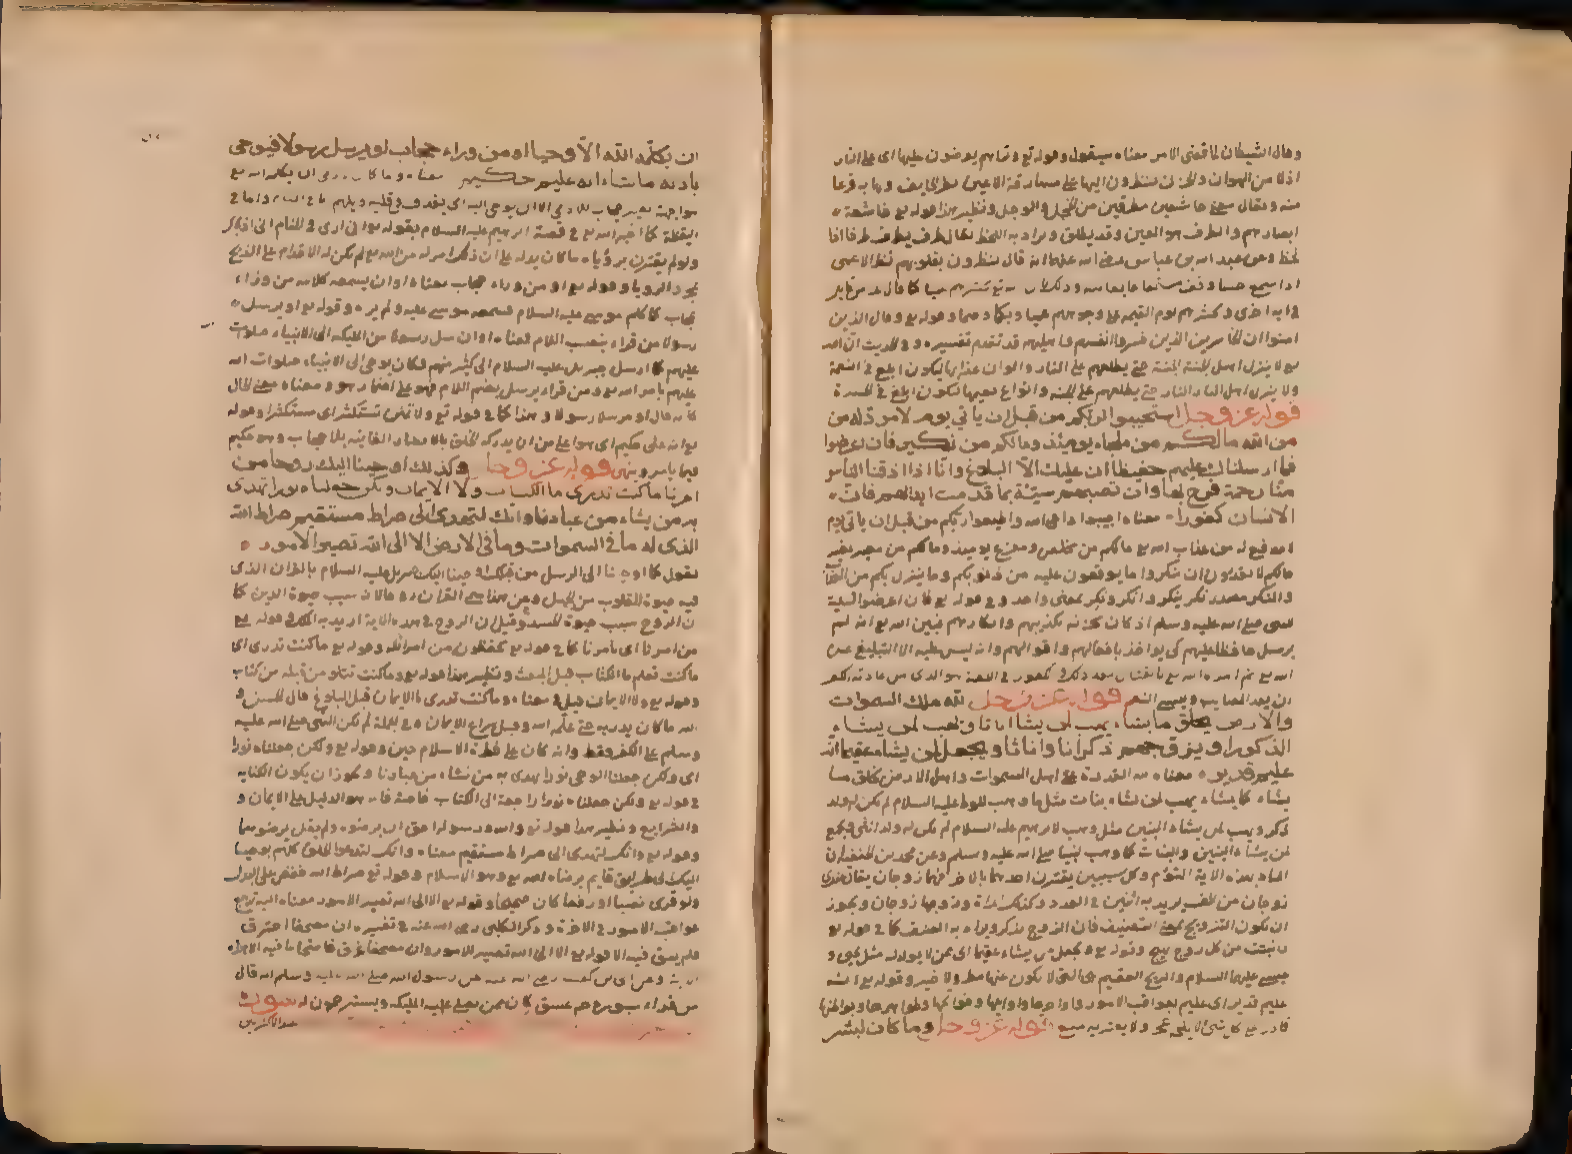 وقال الشيطان لما قضي الامر معناه سيقول وقوله تع وتراهم يعرضون عليها اى على النار
اذلا من الهوان والحزن ينظرون اليها على مسارقة الاعين
منه ويقال معنى خاشعين مطرقين من الخجل والوجل ونظير هذا قوله تع خاشعة
ابصارهم والطرف هو العين وقد يطلق ويراد به اللحظ يقال طرف يطرف طرفا اذا
لحظ وعن عبد الله بن عباس رضى الله عنهما انه قال ينظرون بقلوبهم نظر الاعمى
اذا سمع حسا
فى اية اخرى ونحشرهم يوم القيمة على وجوههم عميا وبكما وصما وقوله تع وقال الذين
امنوا ان الخاسرين الذين خسروا انفسهم واهليهم قد تقدم تفسيره وفى الحديث ان الله
تع لا ينزل اهل الجنة الجنة حتى يطلعهم على النار والوان عذابها ليكون ابلغ فى النعمة
ولا ينزل اهل النار النار حتى يطلعهم على الجنة وانواع نعيمها لتكون ابلغ فى الحسرة
قوله عز وجل استجيبوا لربكم من قبل ان ياتي يوم لا مرد له من
من الله مالكم من ملجاء يومئذ ومالكم من نكير فان اعرضوا
فما ارسلناك عليهم حفيظا ان عليك الا البلاغ وانا اذا اذقنا الناس
منا رحمة فرح بها وان تصبهم سيئة بما قدمت ايديهم فان
الانسان كفورا معناه اجيبوا داعى الله واطيعوا ربكم من قبل ان ياتى يوم
لا مدفع له من عذاب الله تع مالكم من مخلص ومفزع يومئذ ومالكم من مجير يغير
مالكم لا تقدرون ان تنكروا ما يوقعون عليه من ذنوبكم وما ينزل بكم من
والنكر مصدر نكر ينكر وانكر ونكر بمعنى واحد وفى قوله تع فان اعرضوا تسلية
للنبي صلى الله عليه وسلم اذ كان تحزنه تكذيبهم وانكارهم فبين الله تع انه لم
يرسل حافظا عليهم كى يؤاخذ بافعالهم واقوالهم وانه ليس عليه الا التبليغ عن
الله تع
ان يعد المصايب وينسى النعم قوله عز وجل لله ملك السموات
والارض يخلق ما يشاء يهب لمن يشاء اناثا ويهب لمن يشاء
الذكورا ويزوجهم ذكرانا واناثا ويجعل من يشاء عقيما انه
عليم قدير معناه لله القدرة على اهل السموات واهل الارض يخلق ما
يشاء كما يشاء يهب لمن يشاء بنات مثل ما وهب للوط عليه السلام لم يكن له ولد
ذكر ويهب لمن يشاء البنين مثل وهب لابرهيم عليه السلام لم يكن له ولد انثى ويجمع
لمن يشاء البنين والبنات كما وهب لنبينا صلى الله عليه وسلم وعن محمد بن الحنفية ان
المراد بهذه الاية التوام وكل سببين يقترن احدهما بالاخر فهما زوجان يقال عندى
زوجان من الخف يريد به اثنين فى العدد وكذلك المراة وزوجها زوجان ويجوز
ان يكون التزويج بمعنى التصنيف فان الزوج يذكر ويراد به الصنف كما فى قوله تع
وانبتت من كل زوج بهيج وقوله تع ويجعل من يشاء عقيما اى من لا يولد له مثل يحيى و
عيسى عليهما السلام والريح العقيم هى التى لا يكون عنها مطر ولا خير وقوله تع انه
عليم قدير اى عليم بعواقب الامور
قادر على كل شئ لا يلحقه عجز ولا يعتريه منع قوله عز وجل وما كان لبشر
ان يكلمه الله الا وحيا او من وراء حجاب او يرسل رسولا فيوحى
باذنه ما يشاء انه على حكيم معناه وما كان لادمى ان يكلمه الله تع
مواجهة بغير حجاب للادمى الا ان يوحى اليه اى يقذف فى قلبه ويلهم
اليقظة كما اخبر الله تع فى قصة ابرهيم عليه السلام بقوله تع انى ارى فى المنام انى اذبحك
ولو لم يقترن برؤياه ما كان يدله على ان ذلك امر له من الله تع لم يكن له الاقدام على الذبح
بمجرد الرويا وقوله تع او من وراء حجاب معناه او ان يسمعه كلامه من وراء
حجاب كما كلم موسى عليه السلام فسمعه موسى عليه ولم يره وقوله تع او يرسل
رسولا من قراء بنصب اللام فمعناه او ان يرسل رسولا من الملئكة الى الانبياء صلوات
عليهم كما ارسل جبريل عليه السلام الى كثير منهم فكان يوحى الى الانبياء صلوات الله
عليهم بامر الله تع ومن قراء يرسل بضم اللام فهو على اضمار هو ومعناه معنى الحال
كانه قال او مرسلا رسولا وهذا كما فى قوله تع ولا تمنن تستكثر اى مستكثرا وقوله
تع انه على حكيم اى هو اعلى من ان يدركه الخلق بالابصار الفانية بلا حجاب وهو حكيم
فيما يامر وينهى قوله عز وجل وكذلك اوحينا اليك روحا من
امرنا ما كنت تدرى ما الكتاب ولا الايمان ولكن جعلناه نورا نهدى
به من نشاء من عبادنا وانك لتهدى الى صراط مستقيم صراط الله
الذى له ما فى السموات وما فى الارض الا الى الله تصير الامور
يقول كما اوحينا الى الرسل من قبلك اوحينا اليك جبريل عليه السلام بالقران الذى
فيه حيوة القلوب من الجهل وعن هذا سمى القران روحا لانه سبب حيوة الدين كما
ان الروح سبب حيوة الجسد وقيل ان الروح فى هذه الاية اريد به الملك فى قوله تع
من امرنا اى بامرنا كما فى قوله تع يحفظون من امر الله وقوله تع ما كنت تدرى اى
ما كنت تعلم ما الكتاب قبل البعث ونظير هذا قوله تع وما كنت تتلو من قبله من كتاب
وقوله تع ولا الايمان قيل فى معناه وما كنت تدرى ما الايمان قبل البلوغ قال الحسن
الله ما كان يدريه حتى علمه الله وقيل شرايع الايمان وفى الجملة لم يكن النبي صلى الله عليه
وسلم على الكفر قط وانه كان على فطرة الاسلام حين وقوله تع ولكن جعلناه نورا
اى ولكن جعلنا الوحى نورا نهدى به من نشاء من عبادنا ويجوز ان يكون الكناية
فى قوله تع ولكن جعلناه نورا راجعة الى الكتاب خاصة فانه هو الدليل على الايمان و
والشرايع ونظير هذا قوله تع والله ورسوله احق ان يرضوه ولم يقل يرضوهما
وقوله تع وانك لتهدى الى صراط مستقيم معناه وانك لتدعوا الخلق كلهم بوحينا
اليك الى طريق قايم يرضاه الله تع وهو الاسلام وقوله تع صراط الله خفض على البدل
ولو قرى نصبا او رفعا كان صحيحا وقوله تع الا الى الله تصير الامور معناه اليه ترجع
عواقب الامور فى الاخرة وذكر الكلبى رضى الله عنه فى تفسيره ان مصحفا احترق
فلم يبق فيه الا قوله تع الا الى الله تصير الامور وان مصحفا غرق فامتحا ما فيه الا هذه
الاية وعن ابى بن كعب رضى الله عنه عن رسول الله صلى الله عليه وسلم انه قال
من قراء سورة حم عسق كان ممن يصلى عليه الملئكة ويسترحمون له سورة